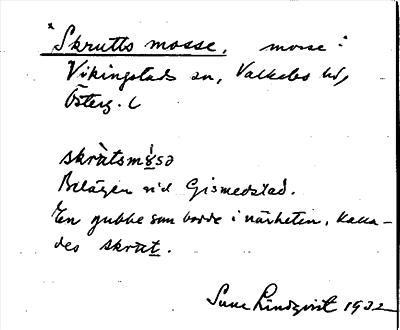 "Skrutts mosse, mosse"
Vikingstads sn, Valkebo hd,
Österg. L
skrùtsmòsə
Belägen vid Gismestad.
En gubbe som bodde i närheten, kalla-
des skrut.
Sune Lindqvist 1932